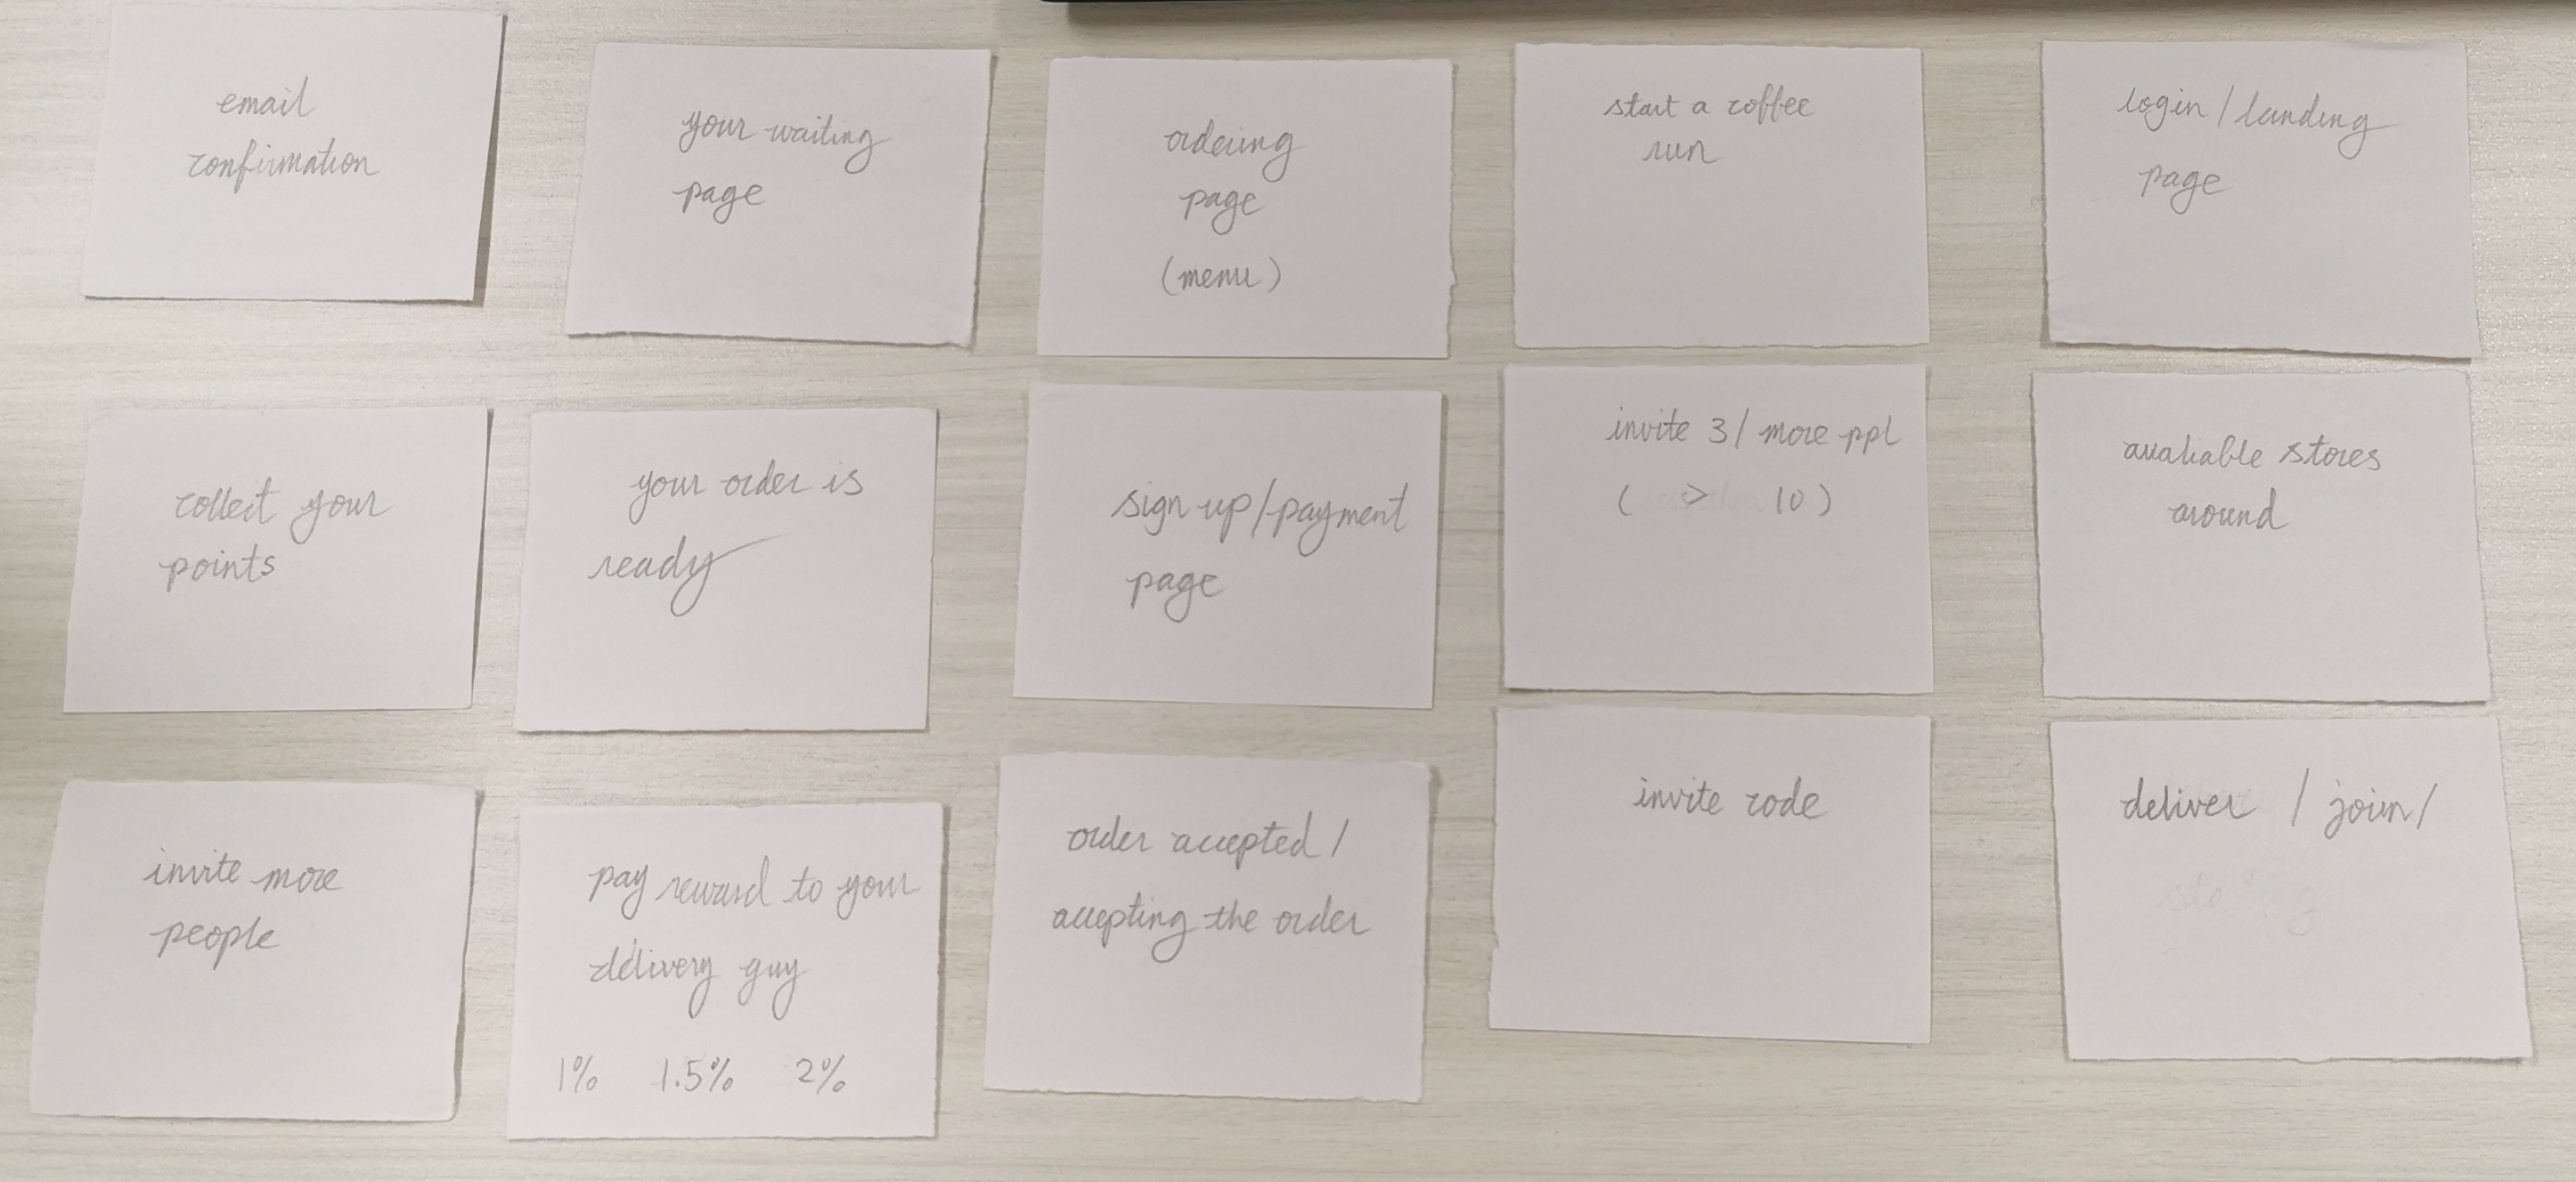 email
confirmation
your waiting
page
ordering
page
(menu)
start a coffee
run
login / landing
page
collect your
points
your order is
ready
sign up/payment
page
invite 3 / more ppl
( > 10 )
avaliable stores
around
invite more
people
pay reward to your
delivery guy
1% 1.5% 2%
order accepted /
accepting the order
invite code
deliver / join /